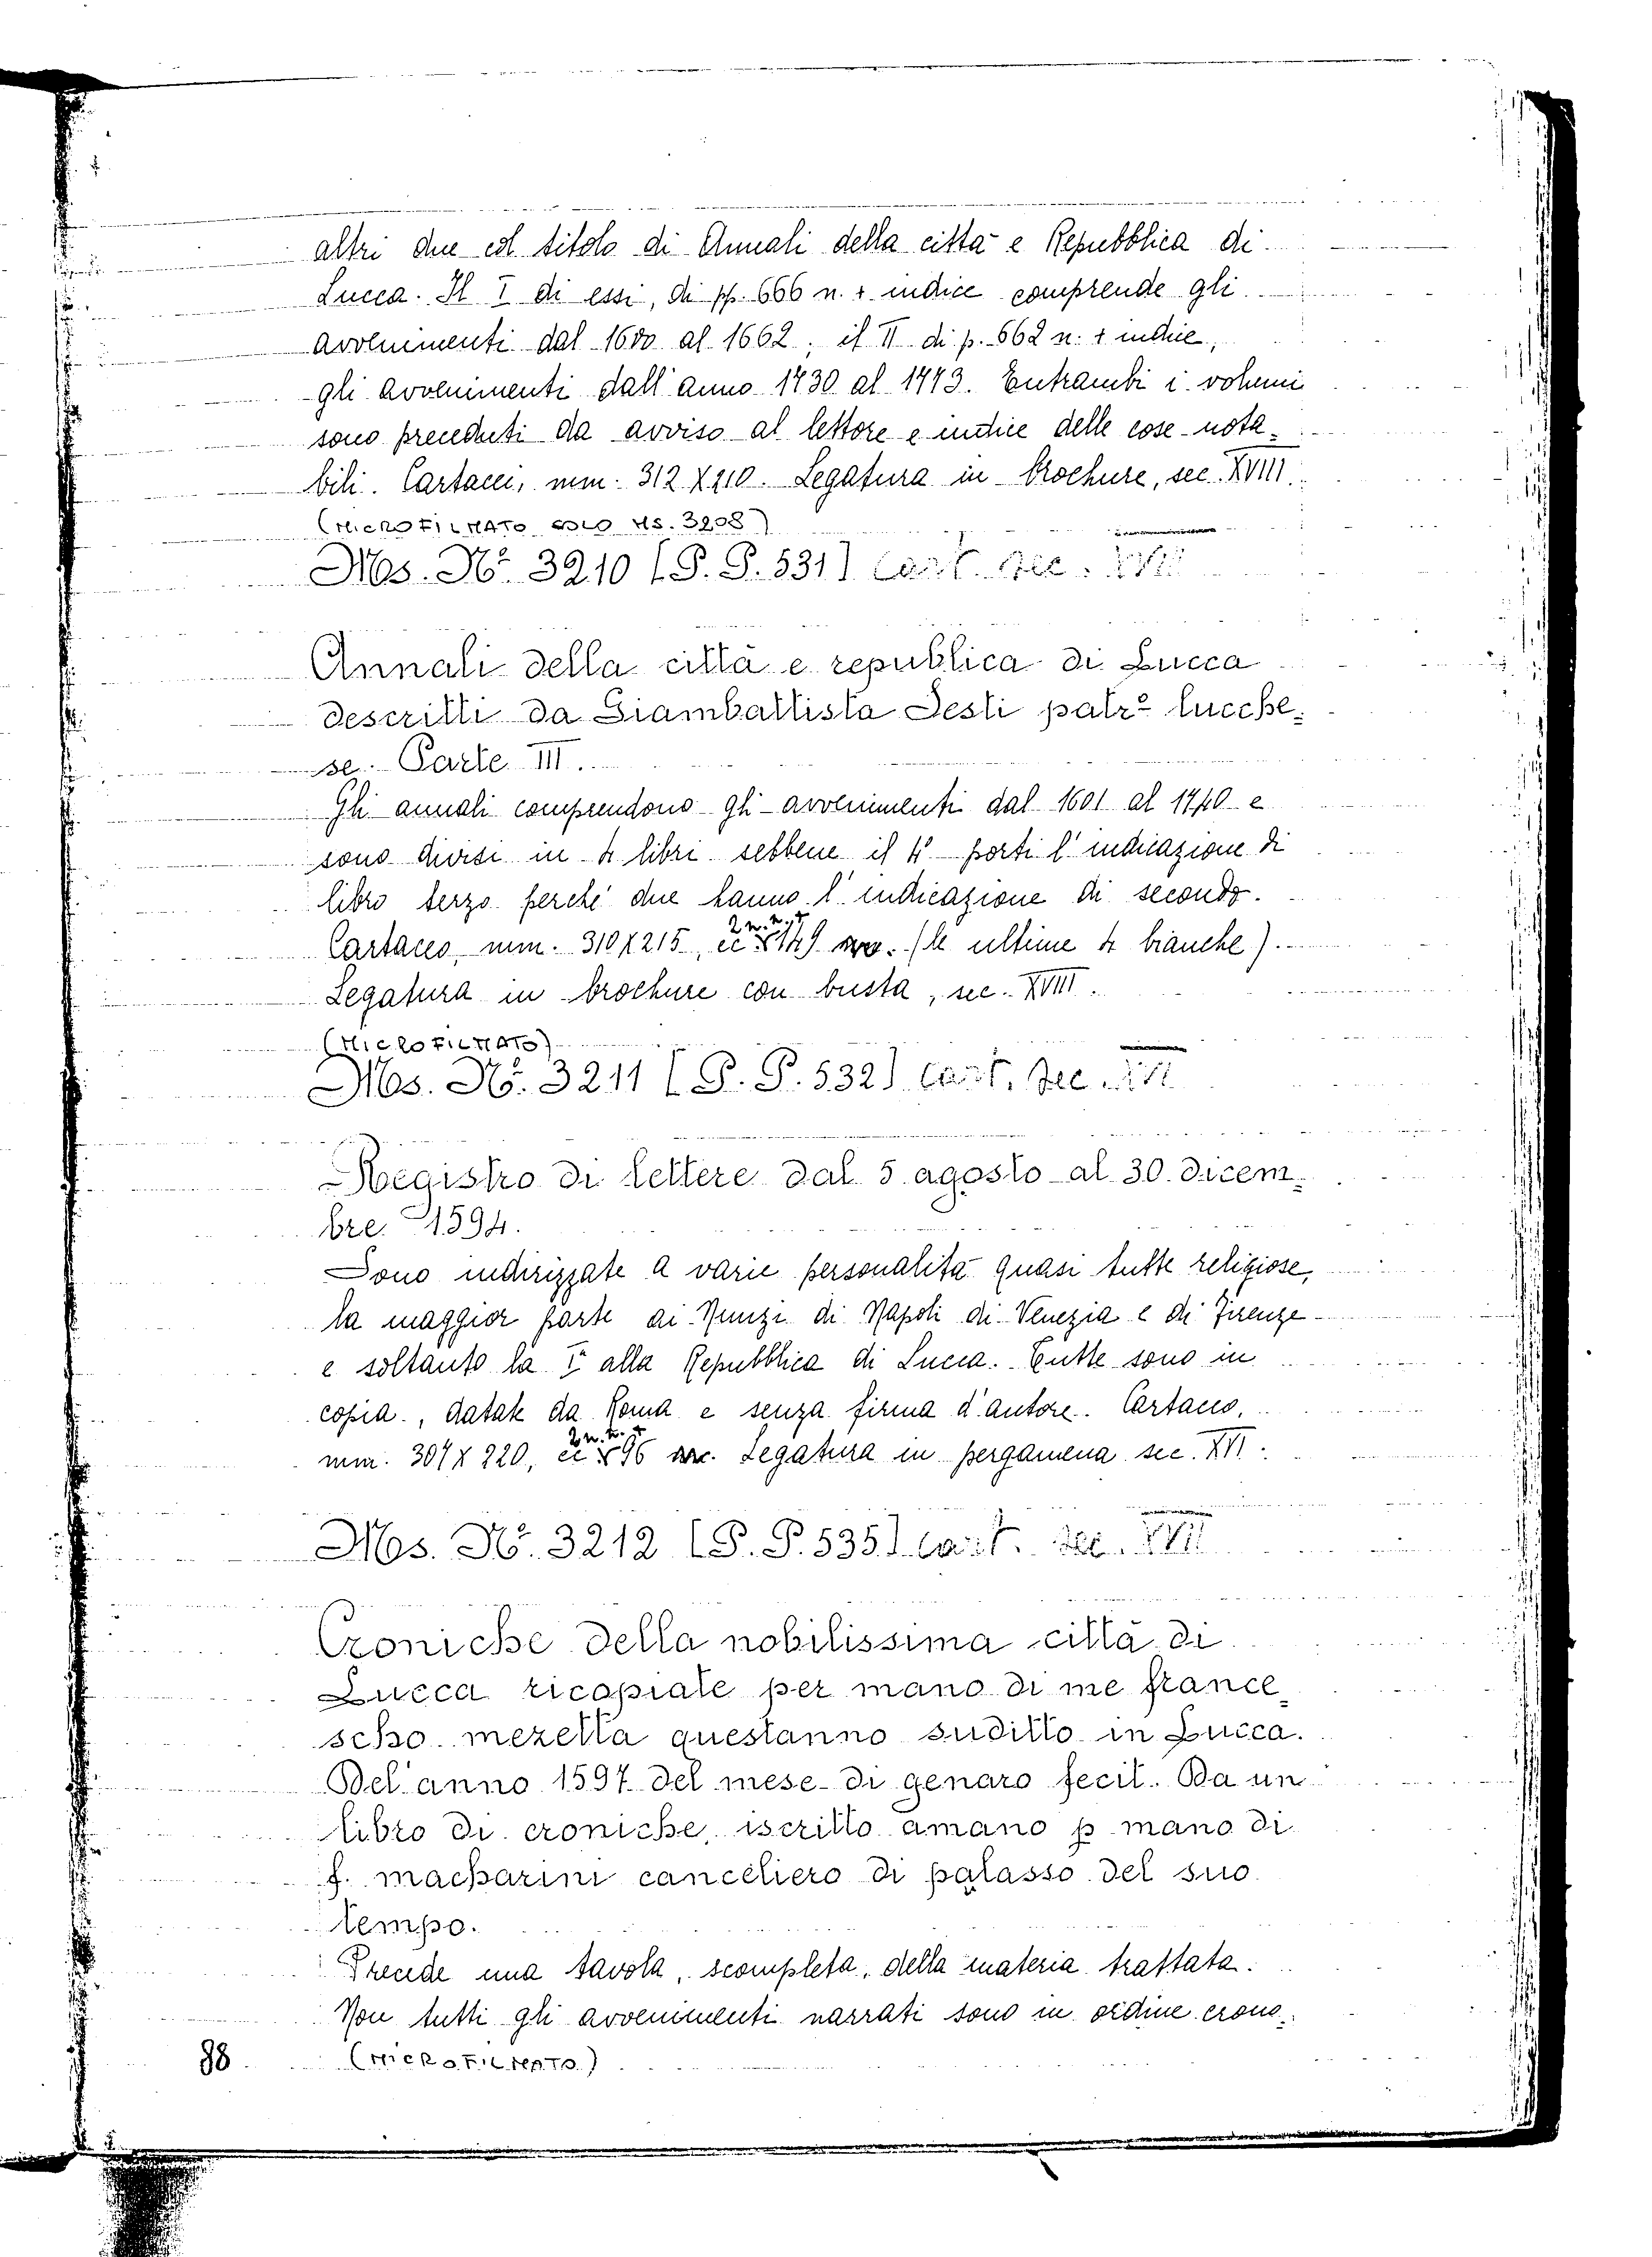 altri due col titolo di Annali della città e Repubblica di
Lucca. Il I di essi, di pp. 666 n. + indice comprende gli
avvenimenti dal 1600 al 1662; il II di p. 662 n. + indice,
gli avvenimenti dall'anno 1730 al 1743. Entrambi i volumi
sono preceduti da avviso al lettore e indice delle cose nota-
bili. Cartacei, mm. 312 X 210. Legatura in brochure, sec. XVIII.
(MICROFILMATO SOLO MS. 3208)
Ms. N.º 3210 (P. P. 531) Cart. sec. XVIII
Annali della città e republica di Lucca
descritti da Giamballista Sesti patrº lucche-
se. Parte III.
Gli annali comprendono gli avvenimenti dal 1601 al 1740 e
sono divisi in 4 libri sebbene il 4º porti l'indicazione di
libro terzo perché due hanno l'indicazione di secondo.
Cartaceo, mm. 310 X 215, cc 2 n. n. + 149 (le ultime 4 bianche).
Legatura in brochure con busta, sec. XVIII.
(MICROFILMATO)
Ms. Nº. 3211 (P. P. 532) Cart. sec. XVI
Registro di lettere dal 5 agosto al 30 dicem-
bre 1594.
Sono indirizzate a varie personalità quasi tutte religiose,
la maggior parte ai Nunzi di Napoli di Venezia e di Firenze
e soltanto la Iª alla Repubblica di Lucca. Tutte sono in
copia, datate da Roma e senza firma d'autore. Cartaceo,
mm. 307 X 220, cc 2 n. n. + 96 Legatura in pergamena sec. XVI.
Ms. Nº. 3212 (P. P. 535) Cart. sec. XVII
Croniche della nobilissima città di
Lucca ricopiate per mano di me france-
scho mezetta questanno suditto in Lucca.
Del'anno 1597 del mese di genaro fecit. Da un
libro di croniche, iscritto amano p mano di
f. macharini canceliero di palasso del suo
tempo.
Precede una tavola, scompleta, della materia trattata.
Non tutti gli avvenimenti narrati sono in ordine crono-
88 (MICROFILMATO)